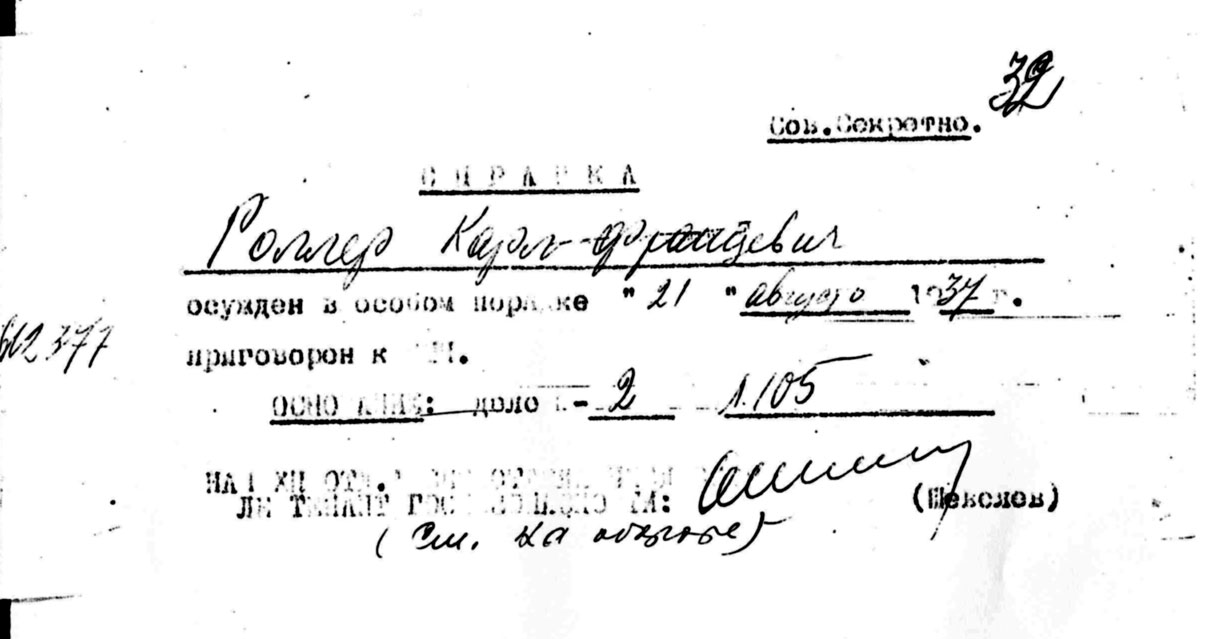 32
Сов.Секретно.
СПРАВКА
Роллер Карл Францевич
осужден в особом порядке "21" августа 1937 г.
приговорен к
ОСНОВАНИЕ: дело -2 л.105
НАЧ XII ОТД.
ЛЕЙТЕНАНТ ГОС
(Шевелев)
(См. на обороте)